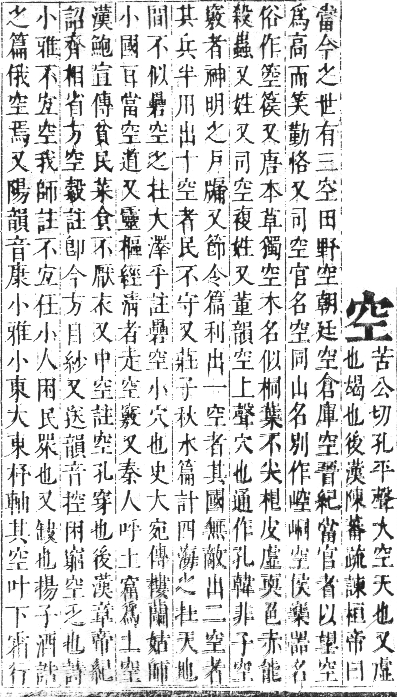 空
苦公切孔平聲大空天也又虛
也竭也後漢陳蕃疏諫桓帝曰
當今之世有三空田野空朝廷空倉庫空晉紀當官者以望空
為高而笑勤恪又司空官名空同山名別作崆峒空侯樂器名
俗作箜篌又唐本草獨空木名似桐葉不尖根皮虛耎色赤能
殺蟲又姓又司空複姓又董韻空上聲穴也通作孔韓非子空
竅者神明之戶牖又節令篇利出一空者其國無敵出二空者
其兵半用出十空者民不守又莊子秋水篇計四海之在天地
間不似礨空之在大澤乎註礨空小穴也史大宛傳樓蘭姑師
小國耳當空道又靈樞經清者走空竅又秦人呼土窟為土空
漢鮑宣傳貧民菜食不厭衣又中空註空孔穿也後漢章帝紀
詔齊相省方空縠註卽今方目紗又送韻音控困窮空乏也詩
小雅不宜空我師註不宜任小人困民眾也又缺也揚子酒誥
之篇俄空焉又陽韻音康小雅小東大東杼軸其空叶下霜行